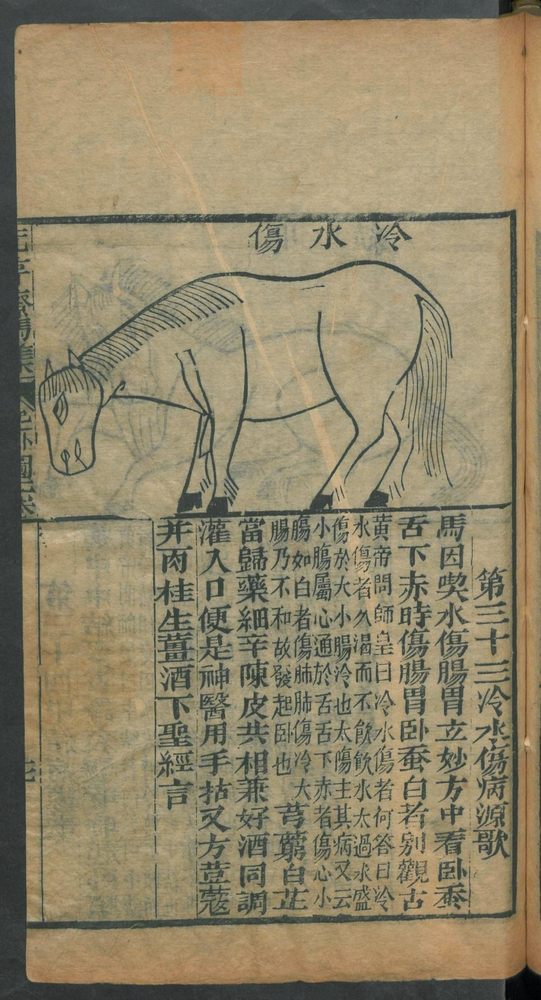 冷水傷
第三十三冷水傷病源歌
馬因喫水傷腸胃立妙方中看卧蚕
舌下赤時傷腸胃卧蚕白者别觀古
黄帝問師皇曰冷水傷者何答曰冷
水傷者久渴而不飲飲水太過水盛
傷於大小腸冷也太陽主其病又云
小腸屬心通於舌舌下赤者傷心小
腸如白者傷肺肺傷冷大
腸乃不和故發起卧也
芎藭白芷
當歸藥細辛陳皮共相兼好酒同調
灌入口便是神醫用手拈又方荳蔻
并肉桂生薑酒下聖經言
元亨療馬集